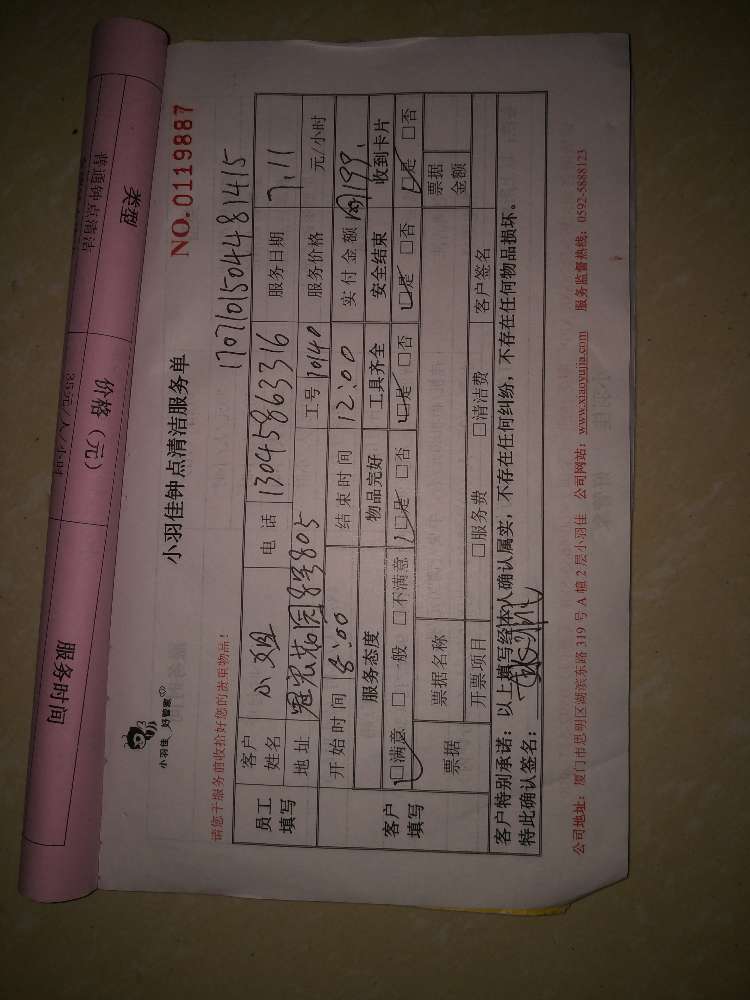 类型
普通钟点清洁
价格（元）
35元/人/小时
服务时间
小羽佳 好管家
小羽佳钟点清洁服务单
NO.0119887
1707101504481415
请您于服务前收拾好您的贵重物品！
员工填写
客户姓名
电话 13045863316 服务日期 7.11
地址 冠宏花园8号805 工号 10140 服务价格 元/小时
客户填写
开始时间 8:00 结束时间 12:00 实付金额 199.
服务态度 物品完好 工具齐全 安全结束 收到卡片
□满意 □一般 □不满意 □是 □否 □是 □否 □是 □否 □是 □否
票据 票据名称 票据金额
开票项目 □服务费 □清洁费 客户签名
客户特别承诺：以上填写经本人确认属实，不存在任何纠纷，不存在任何物品损坏。
特此确认签名：
公司地址：厦门市思明区湖滨东路 319 号 A 幢 2 层小羽佳 公司网站：www.xiaoyujia.com 服务监督热线：0592-5888123